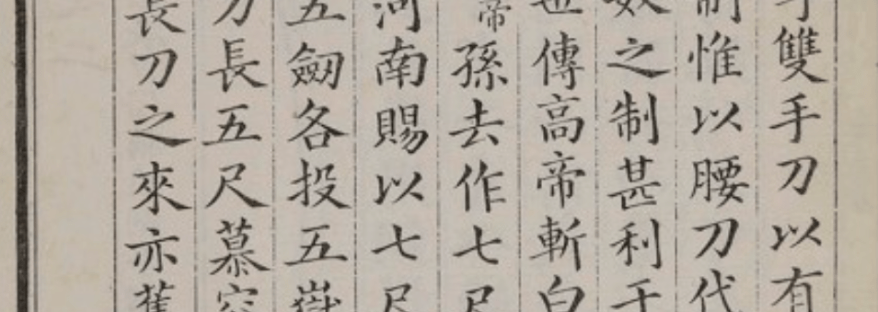 雙手刀以有
惟以腰刀代
之制甚利
傳高帝斬白
帝孫去作七尺
河南賜以七尺
五劒各投五嶽
刀長五尺慕容
長刀之來亦舊